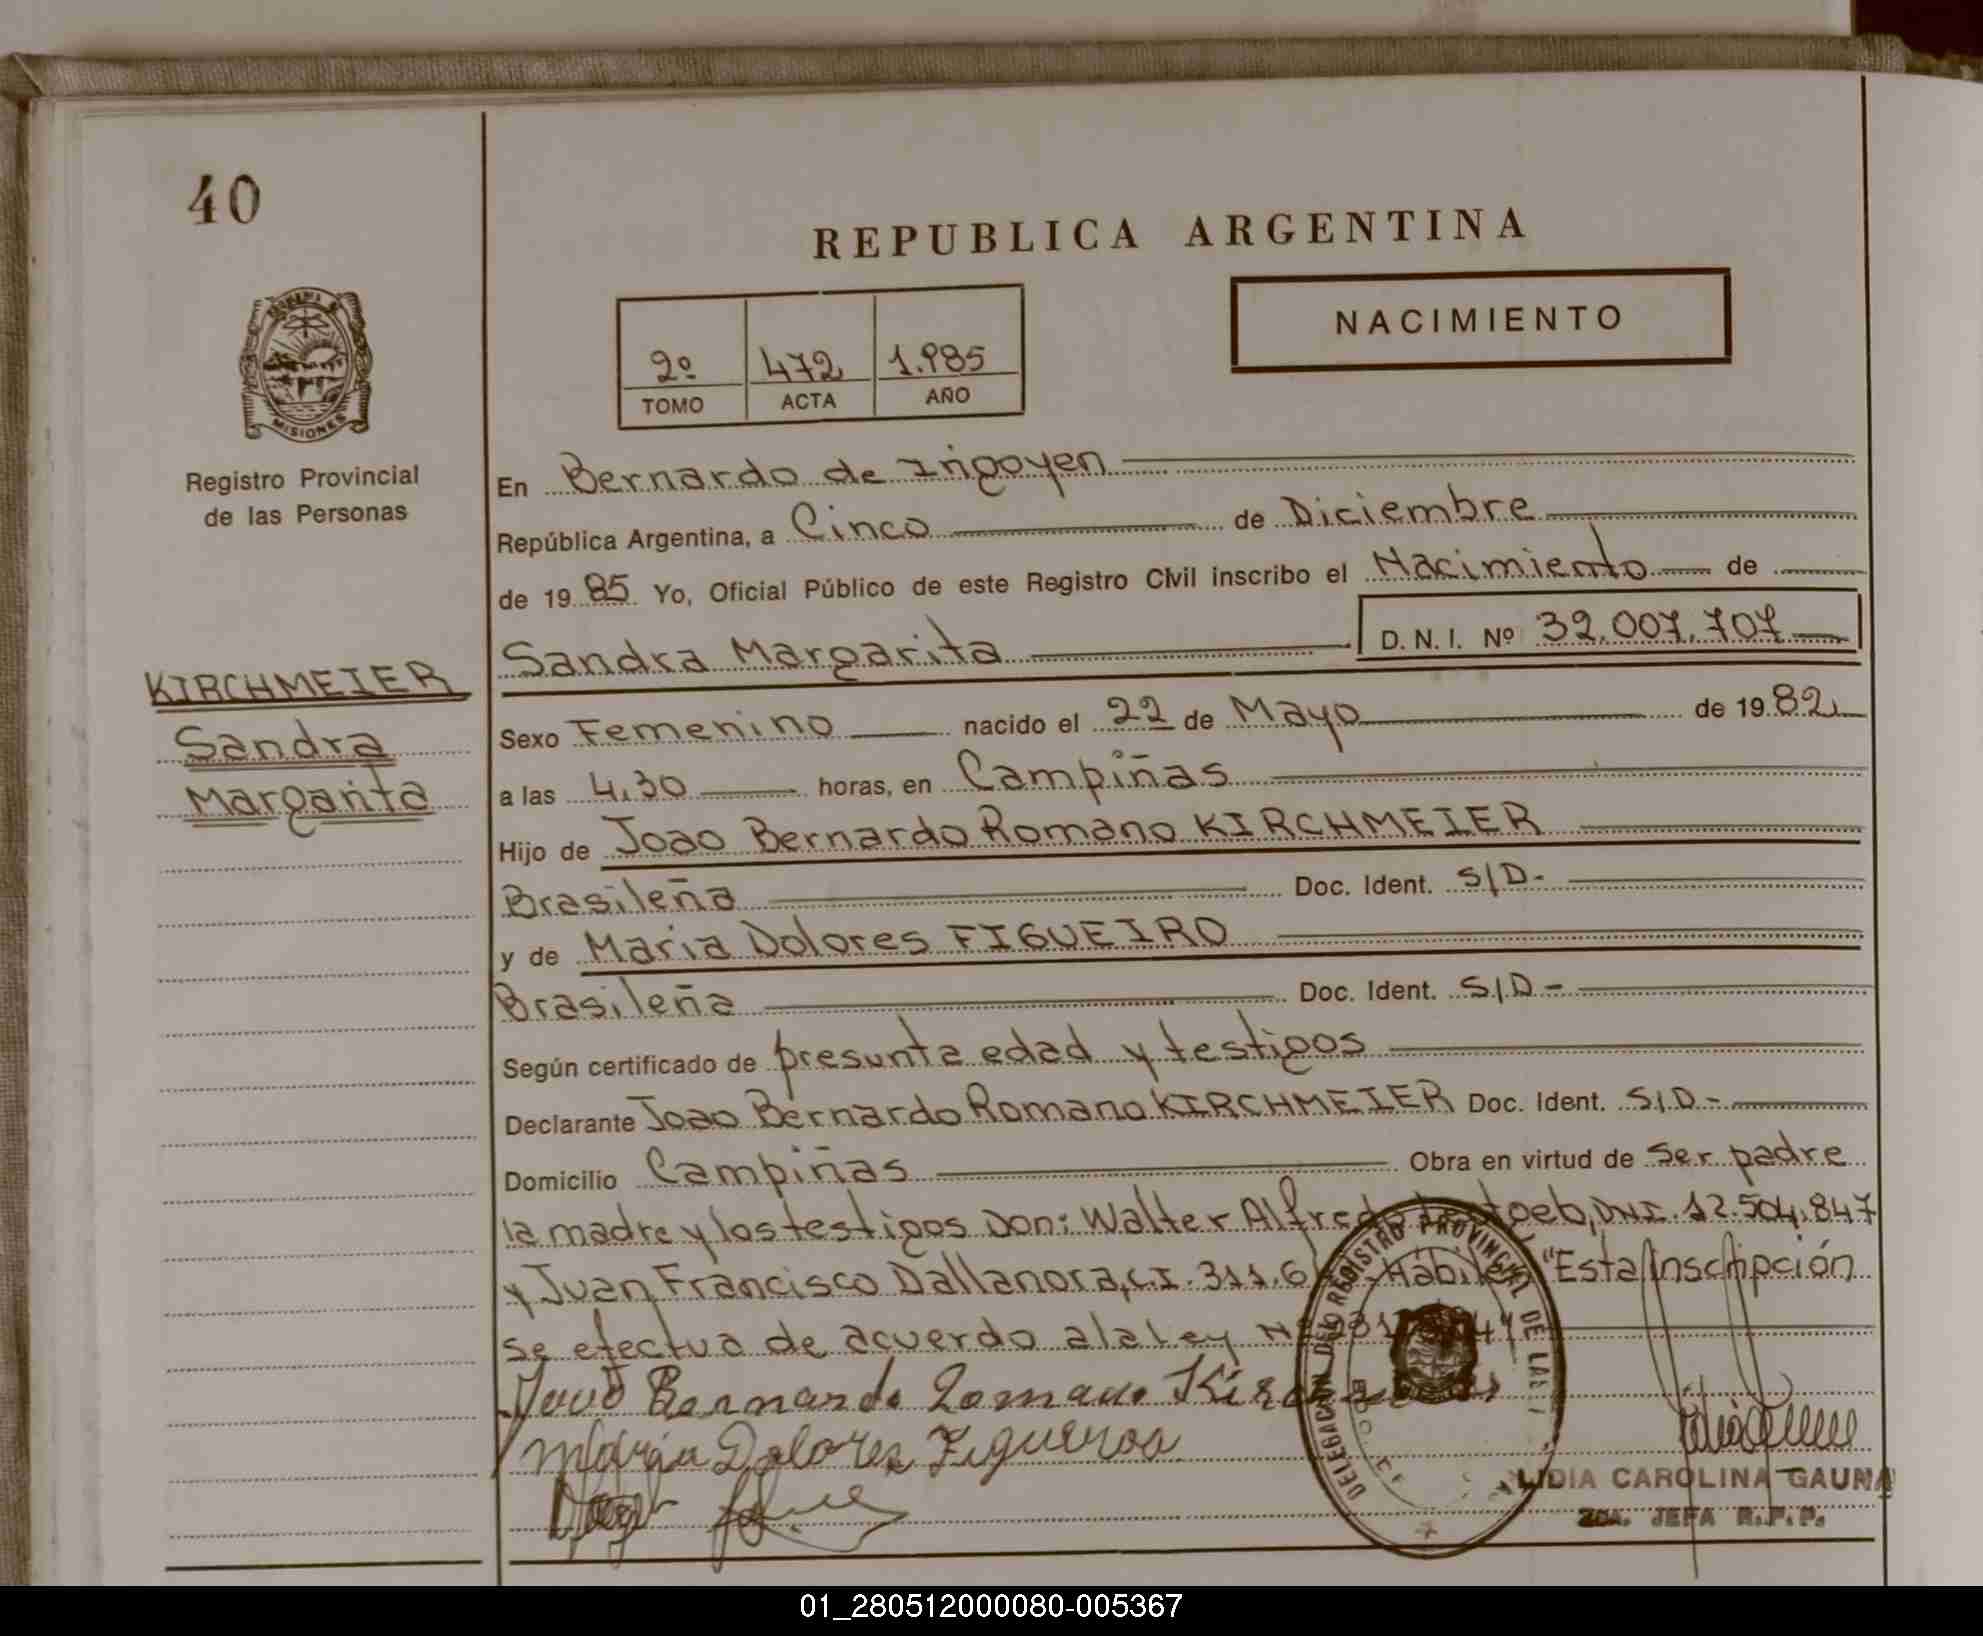 40
REPUBLICA ARGENTINA
NACIMIENTO
2º 472 1.985
TOMO ACTA AÑO
MISIONES
Registro Provincial
de las Personas
KIRCHMEIER
Sandra
Margarita
En Bernardo de Irigoyen
República Argentina, a Cinco de Diciembre
de 19 85 Yo, Oficial Público de este Registro Civil inscribo el Nacimiento de
Sandra Margarita D. N. I. Nº 32.007.707
Sexo Femenino nacido el 22 de Mayo de 19 82
a las 4,30 horas, en Campiñas
Hijo de Joao Bernardo Romano KIRCHMEIER
Brasileña Doc. Ident. S/D-
y de Maria Dolores FIGUEIRO
Brasileña Doc. Ident. S/D-
Según certificado de presunta edad y testigos
Declarante Joao Bernardo Romano KIRCHMEIER Doc. Ident. S/D-
Domicilio Campiñas Obra en virtud de Ser padre
la madre y los testigos Don: Walter Alfredo DNI. 12.504.847
y Juan Francisco Dallanora, C.I. 311.6 Habiles "Esta Inscripción
se efectua de acuerdo a la Ley Nº
Bernardo Romano
Maria Dolores Figueiroa
DELEGACION DEL REGISTRO PROVINCIAL DE LAS
LIDIA CAROLINA GAUNA
2DA. JEFA R.P.P.
01_280512000080-005367